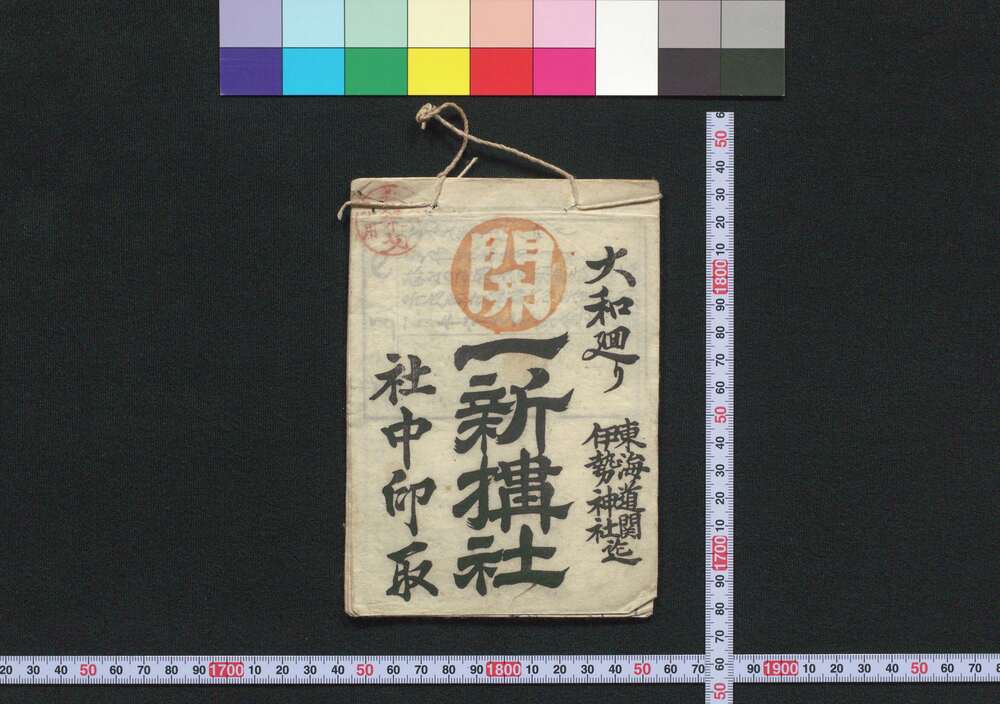 大和廻り
東海道関
伊勢神社迄
開
一新搆社
社中印取
50 40 30 20 10 1800 90 80 70 60 50 40 30 20 10 1700 90 80 70 60 50
20 30 40 50 60 70 80 90 1700 10 20 30 40 50 60 70 80 90 1800 10 20 30 40 50 60 70 90 1900 10 20 30 40 50 60 70